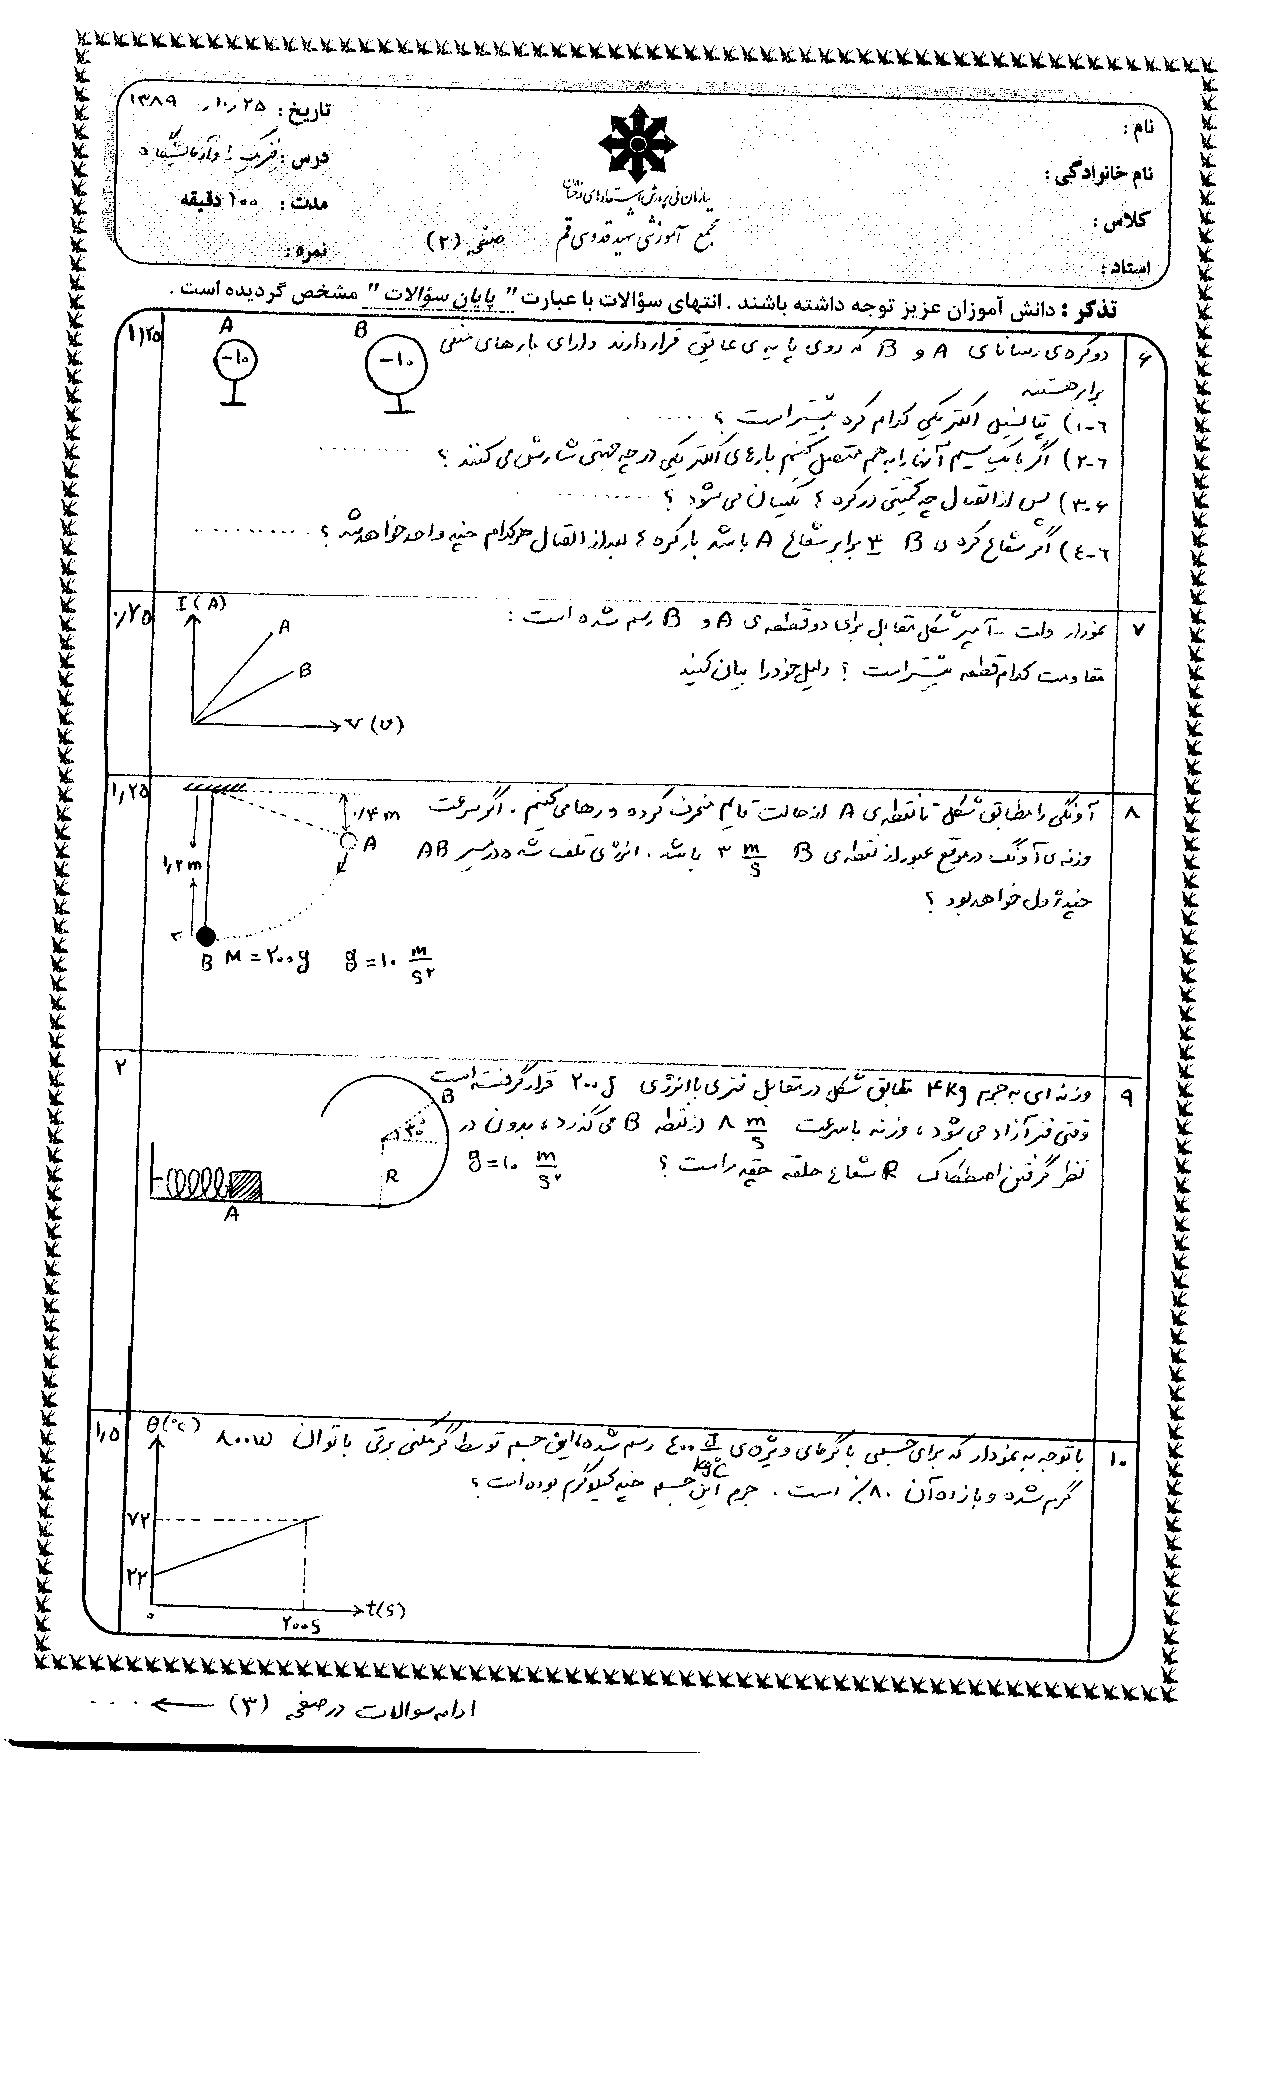 نام :
نام خانوادگی :
کلاس :
استاد :
سازمان ملی پرورش استعدادهای درخشان
مجتمع آموزشی شهید قدوسی قم
صفحه (۲)
تاریخ : ۱۳۸۹ ر۱۰ر ۲۵
درس : فیزیک ۱ و آزمایشگاه
مدت : ۱۰۰ دقیقه
نمره :
تذکر : دانش آموزان عزیز توجه داشته باشند . انتهای سؤالات با عبارت " پایان سؤالات " مشخص گردیده است .
۶
دو کره‌ی رسانای A و B که روی پایه‌ی عایق قرار دارند دارای بارهای منفی
برابر هستند
۶-۱) پتانسیل الکتریکی کدام کره بیشتر است ؟ ......
۶-۲) اگر با یک سیم آنها را به هم متصل کنیم بارهای الکتریکی در چه جهتی شارش می کنند ؟ ..........
۶-۳) پس از اتصال چه کمیتی در کره ها یکسان می شود ؟ ..........
۶-٤) اگر شعاع کره ی B ۳ برابر شعاع A باشد بار کره ها بعد از اتصال هر کدام چند واحد خواهد شد ؟ ..........
۱٫۲۵
A
B
-۱۰
-۱۰
۷
نمودار ولت - آمپر شکل مقابل برای دو قطعه ی A و B رسم شده است :
مقاومت کدام قطعه بیشتر است ؟ دلیل خود را بیان کنید
۰٫۷۵
I (A)
A
B
V (v)
۸
آونگی را مطابق شکل تا نقطه ی A از حالت قایم منحرف کرده و رها می کنیم . اگر سرعت
وزنه ی آونگ در موقع عبور از نقطه ی B ۳ m/s باشد . انرژی تلف شده در مسیر AB
چند ژول خواهد بود ؟
۱٫۲۵
۰٫۴ m
A
۱٫۲ m
B M = ۲۰۰g g = ۱۰ m/s۲
۹
وزنه ای به جرم ۴kg مطابق شکل در مقابل فنری با انرژی ۲۰۰ J قرار گرفته است
وقتی فنر آزاد می شود ، وزنه با سرعت ۸ m/s از نقطه B می گذرد ، بدون در
نظر گرفتن اصطکاک R شعاع حلقه چقدر است ؟ g = ۱۰ m/s۲
۲
B
۳۰°
R
A
۱۰
با توجه به نمودار که برای جسمی با گرمای ویژه ی ٤۰۰ J/kg°C رسم شده ، این جسم توسط گرمکنی برقی با توان ۸۰۰w
گرم شده و بازده آن ۸۰٪ است . جرم این جسم چند کیلوگرم بوده است ؟
۱٫۵
θ (°C)
۷۲
۲۲
۰
۲۰۰s
t(s)
ادامه سوالات در صفحه (۳) ← ....